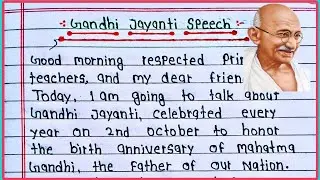 Gandhi Jayanti Speech
Good morning respected
teachers, and my dear
Today, I am going to talk about
Gandhi Jayanti, celebrated every
year on 2nd October to honor
the birth anniversary of mahatma
Gandhi, the Father of our Nation.